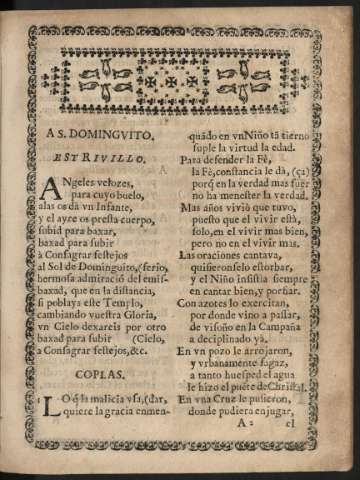 A S. DOMINGVITO.
ESTRIVILLO.
ANgeles velozes,
para cuyo buelo,
alas os dà vn Infante,
y el ayre os presta cuerpo,
subid para baxar,
baxad para subir
à Consagrar festejos
al Sol de Dominguito, (ferio,
hermosa admiraciõ del emis-
baxad, que en la distancia,
si poblays este Templo,
cambiando vuestra Gloria,
vn Cielo dexareis por otro
baxad para subir (Cielo,
a Consagrar festejos, &c.
COPLAS.
LO q̃ la malicia vsa, (dar,
quiere la gracia enmen-
quãdo en vn Niño tã tierno
suple la virtud la edad.
Para defender la Fè,
la Fè, constancia le dà, (ça)
porq̃ en la verdad mas fuer
no ha menester la verdad.
Mas años viviò que tuvo,
puesto que el vivir està,
solo, en el vivir mas bien,
pero no en el vivir mas.
Las oraciones cantava,
quisieronselo estorbar,
y el Niño insistia siempre
en cantar bien, y porfiar.
Con azotes lo exercitan,
por donde vino a passar,
de visoño en la Campaña
a deciplinado yà.
En vn pozo le arrojaron,
y vrbanamente fugaz,
a tanto huesped el agua
le hizo el puẽte de Christal.
En vna Cruz le pusieron,
donde pudiera enjugar,
A 2 el